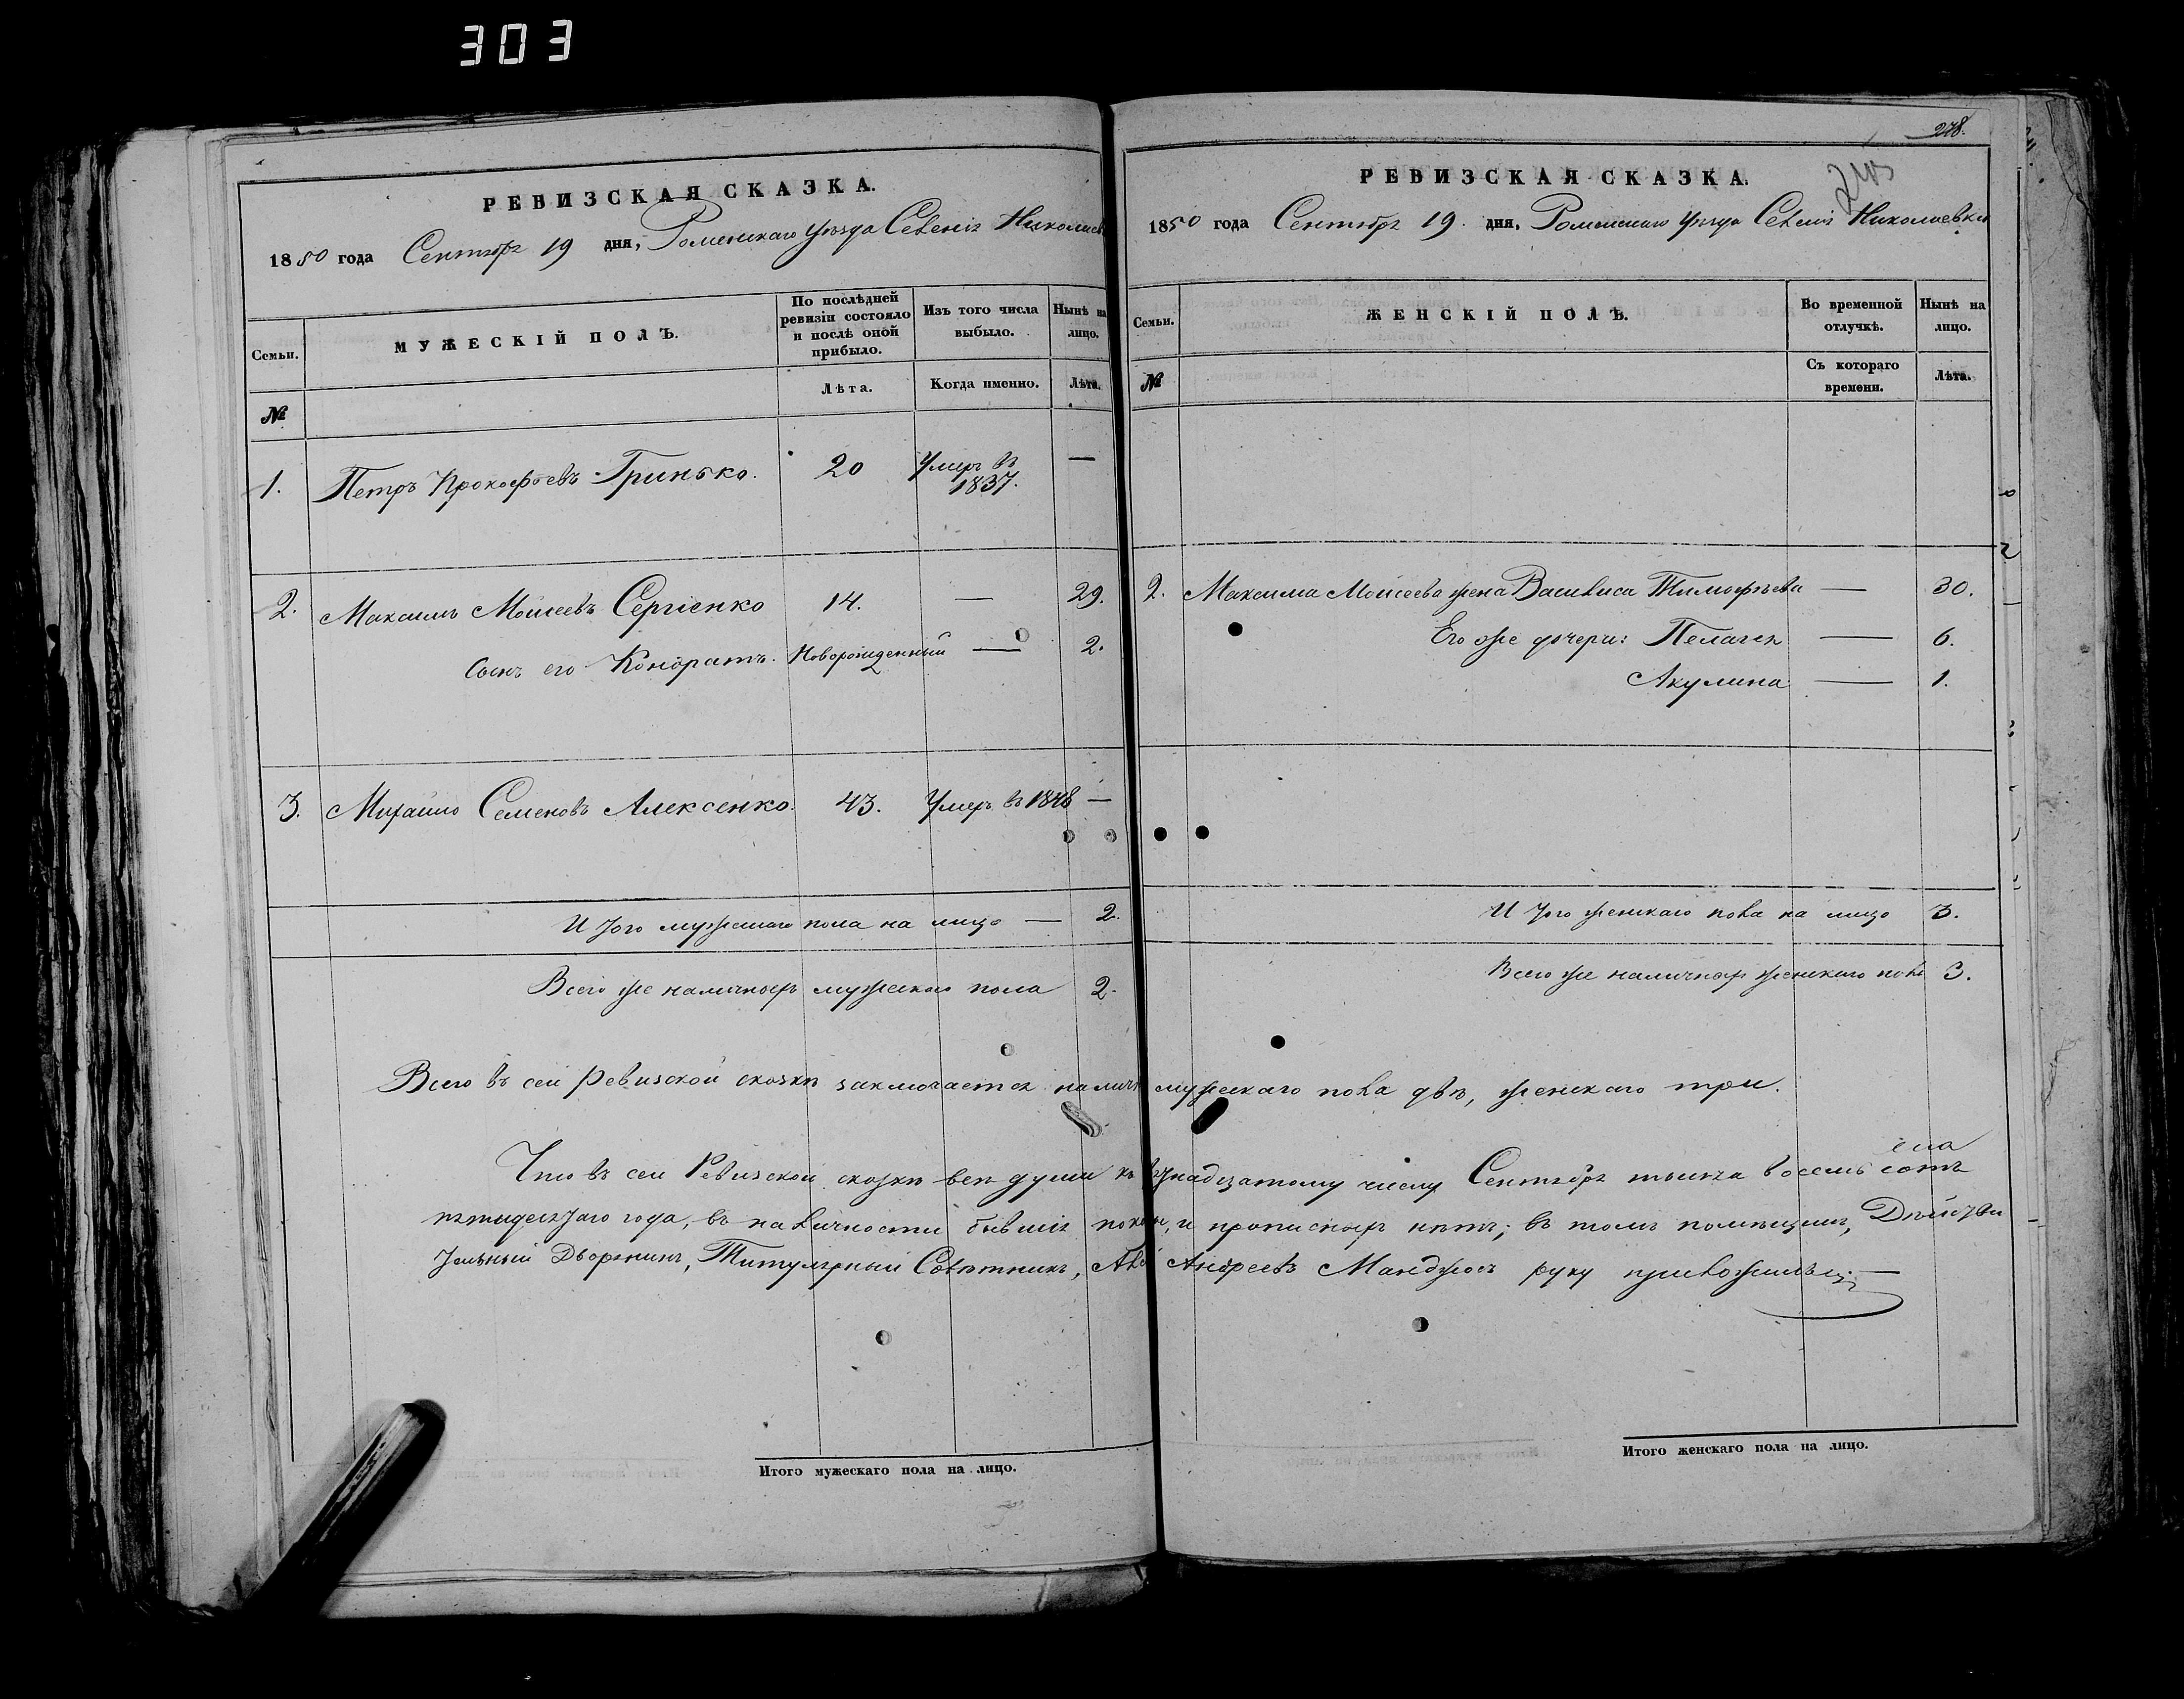 303
РЕВИЗСКАЯ СКАЗКА.
1850 года Сентября 19 дня, Роменскаго Уѣзда Селенія Николаев
Семьи.
МУЖЕСКІЙ ПОЛЪ.
По послѣдней ревизіи состояло и послѣ оной прибыло.
Изъ того числа выбыло.
Нынѣ на лицо.
№
Лѣта.
Когда именно.
Лѣта.
1. Петръ Прокофьевъ Гринько. 20 Умеръ въ 1837. —
2. Максимъ Моисеевъ Сергіенко 14. — 29.
Сынъ его Кондратъ. Новорожденный — 2.
3. Михайло Семеновъ Алексенко. 43. Умеръ въ 1848 —
Итого мужескаго пола на лицо — 2.
Всего же наличныхъ мужескаго пола 2.
278.
РЕВИЗСКАЯ СКАЗКА.
1850 года Сентября 19. дня, Роменскаго Уѣзда Селенія Николаевки
Семьи.
ЖЕНСКІЙ ПОЛЪ.
Во временной отлучкѣ.
Нынѣ на лицо.
№
Съ котораго времени.
Лѣта.
2. Максима Моисеева жена Василиса Тимофѣева — 30.
Его же дочери: Пелагея — 6.
Акулина — 1.
Итого женскаго пола на лицо 3.
Всего же наличныхъ женскаго пола 3.
Всего въ сей Ревизской сказкѣ заключается налич мужескаго пола двѣ, женскаго три.
Что въ сей Ревизской сказкѣ всѣ души къ надцатому числу Сентября тысяча восемь сотъ
пятидесятаго года, въ наличности бывшія показ, и прописныхъ нѣтъ; въ томъ помѣщикъ, Дѣйстви
тельный Дворянинъ, Титулярный Совѣтникъ, Андреевъ Манджосъ руку приложилъ
Итого мужескаго пола на лицо.
Итого женскаго пола на лицо.